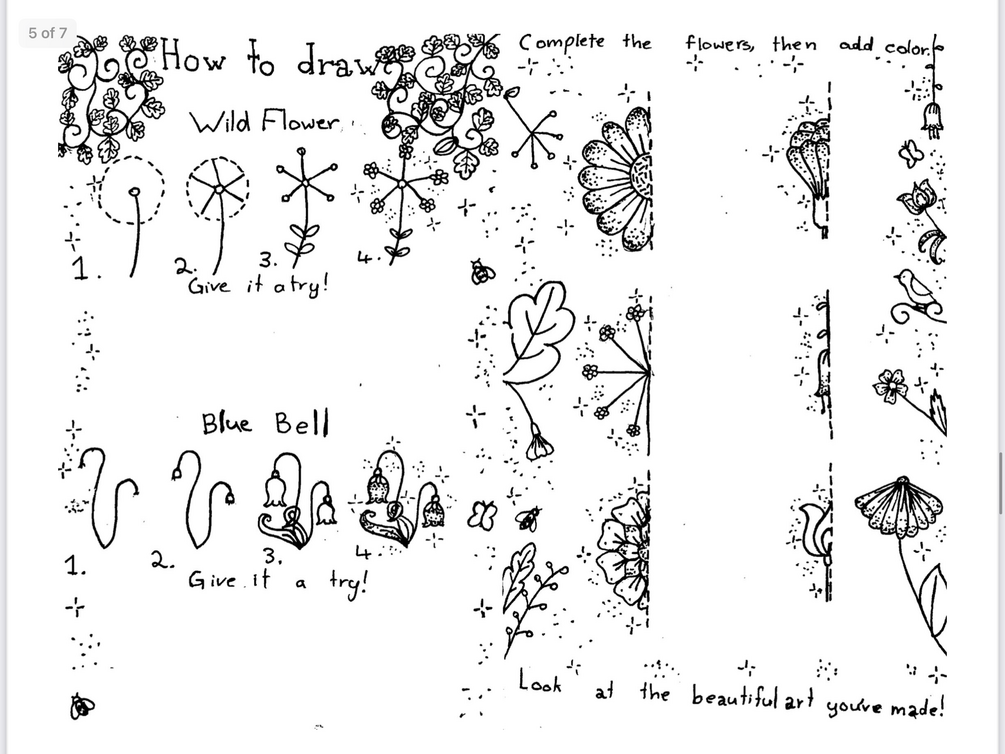 5 of 7
How to draw
Wild Flower
1.
2.
3.
4.
Give it a try!
Blue Bell
1.
2.
3.
4.
Give it a try!
Complete the flowers, then add color.
Look at the beautiful art you've made!